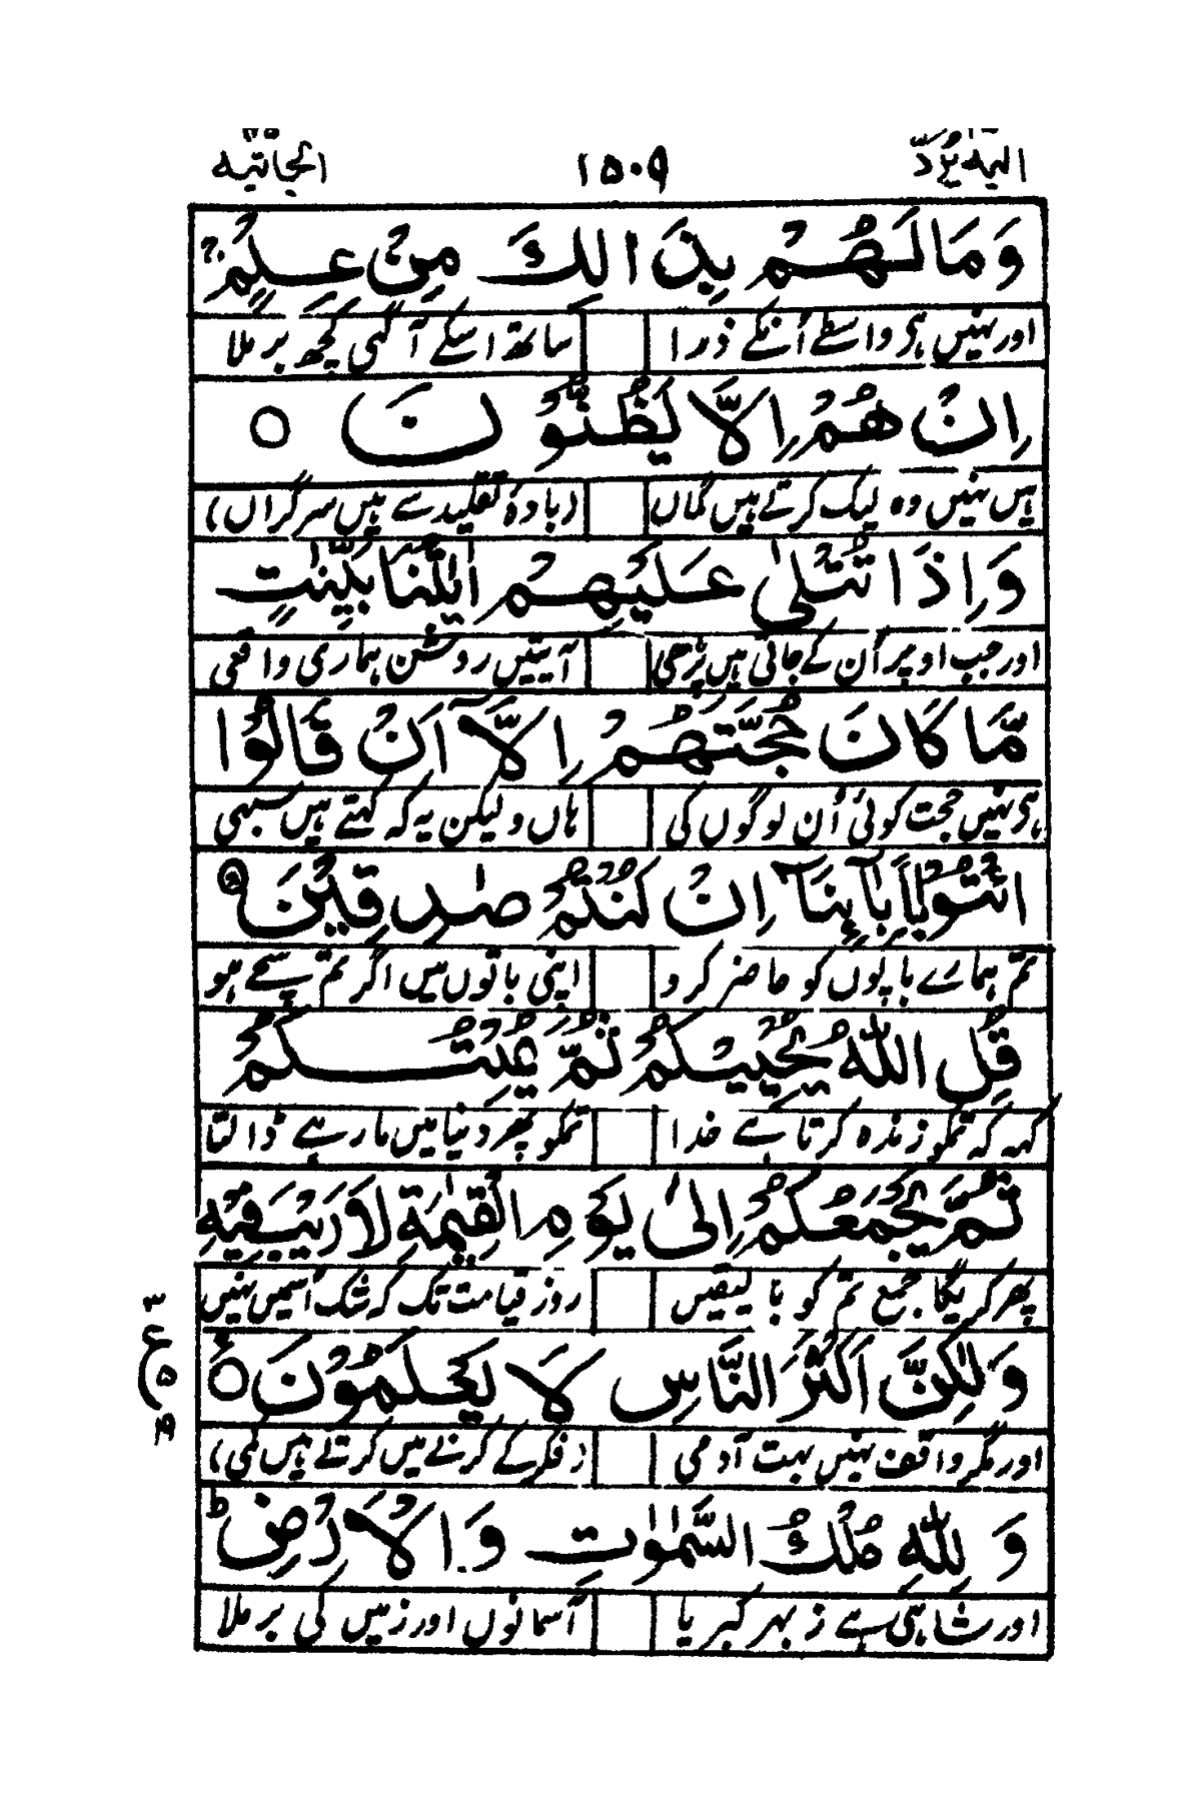 الیه یرد ۲۵ ۱۵۰۹ الجاثیة ۴۵
وَمَا لَهُمْ بِذَالِكَ مِنْ عِلْمٍ ۚ
اور نہیں ہی واسطے اُنکے ذرا ساتھ اسکے آگہی کچھ بر ملا
اِنْ هُمْ اِلَّا يَظُنُّوْنَ ○
ہیں نہیں وہ لیک کرتے ہیں گماں (بادۂ تقلید سے ہیں سرگراں)
وَاِذَا تُتْلٰى عَلَيْهِمْ اٰيٰتُنَا بَيِّنٰتٍ
اور جب اوپر اُن کے جاتی ہیں پڑھی آیتیں روشن ہماری واقعی
مَّا كَانَ حُجَّتَهُمْ اِلَّآ اَنْ قَالُوا
ہی نہیں حجت کوئی اُن لوگوں کی ہاں ولیکن یہ کہ کہتے ہیں سبھی
ائْتُوْا بِاٰبَآئِنَآ اِنْ كُنْتُمْ صٰدِقِيْنَ
تم ہمارے باپوں کو حاضر کرو اپنی باتوں میں اگر تم سچے ہو
قُلِ اللّٰهُ يُحْيِيْكُمْ ثُمَّ يُمِيْتُكُمْ
کہہ کہ تمکو زندہ کرتا ہے خدا تمکو پھر دنیا میں مار ہے ڈالتا
ثُمَّ يَجْمَعُكُمْ اِلٰى يَوْمِ الْقِيٰمَةِ لَا رَيْبَ فِيْهِ
پھر کریگا جمع تم کو با لیقیں روز قیامت تک کہ شک اُسمیں نہیں
وَلٰكِنَّ اَكْثَرَ النَّاسِ لَا يَعْلَمُوْنَ ○
اور مگر واقف نہیں بہت آدمی (فکر کے کرنے میں کرتے ہیں کمی)
۳ ع ۵
وَ لِلّٰهِ مُلْكُ السَّمٰوٰتِ وَ الْاَرْضِ ؕ
اور شاہی ہے ز بہر کبریا آسمانوں اور زمیں کی بر ملا